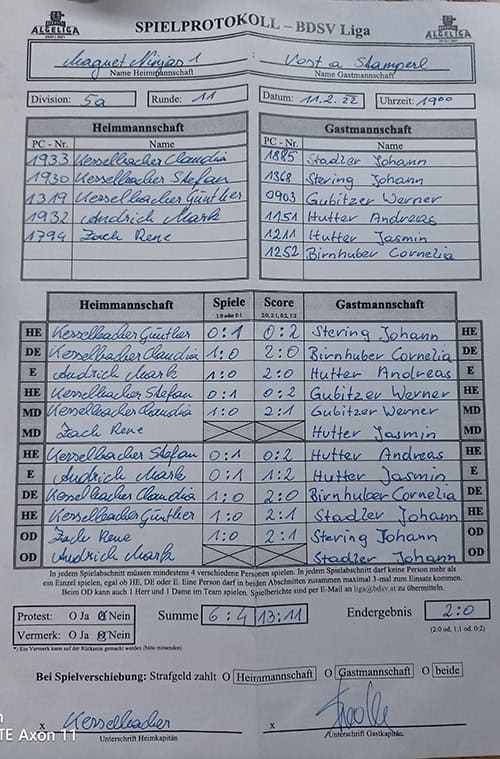 ALGELIGA SPIELPROTOKOLL – BDSV Liga ALGELIGA
Magnet Ninjas 1 : Vost a Stamperl
Name Heimmannschaft Name Gastmannschaft
Division: 5a Runde: 11 Datum: 11.2.22 Uhrzeit: 19⁰⁰
Heimmannschaft Gastmannschaft
PC - Nr. Name PC - Nr. Name
1933 Kesselbacher Claudia 1885 Stadler Johann
1930 Kesselbacher Stefan 1368 Stering Johann
1319 Kesselbacher Günther 0903 Gubitzer Werner
1932 Andrich Mark 1151 Hutter Andreas
1794 Zach Rene 1211 Hutter Jasmin
1252 Birnhuber Cornelia
Heimmannschaft Spiele Score Gastmannschaft
1:0 oder 0:1 2:0, 2:1, 0:2, 1:2
HE Kesselbacher Günther 0:1 0:2 Stering Johann HE
DE Kesselbacher Claudia 1:0 2:0 Birnhuber Cornelia DE
E Andrich Mark 1:0 2:0 Hutter Andreas E
HE Kesselbacher Stefan 0:1 0:2 Gubitzer Werner HE
MD Kesselbacher Claudia 1:0 2:1 Gubitzer Werner MD
MD Zach Rene Hutter Jasmin MD
HE Kesselbacher Stefan 0:1 0:2 Hutter Andreas HE
E Andrich Mark 0:1 1:2 Hutter Jasmin E
DE Kesselbacher Claudia 1:0 2:0 Birnhuber Cornelia DE
HE Kesselbacher Günther 1:0 2:1 Stadler Johann HE
OD Zach Rene 1:0 2:1 Stering Johann OD
OD Andrich Mark Stadler Johann OD
In jedem Spielabschnitt müssen mindestens 4 verschiedene Personen spielen. In jedem Spielabschnitt darf keine Person mehr als
ein Einzel spielen, egal ob HE, DE oder E. Eine Person darf in beiden Abschnitten zusammen maximal 3-mal zum Einsatz kommen.
Beim OD kann auch 1 Herr und 1 Dame im Team spielen. Spielberichte sind per E-Mail an liga@bdsv.at zu übermitteln.
Protest: O Ja O Nein Summe 6:4 13:11 Endergebnis 2:0
Vermerk: O Ja O Nein (2:0 od. 1:1 od. 0:2)
*) Ein Vermerk kann auf der Rückseite gemacht werden (bitte mitsenden)
Bei Spielverschiebung: Strafgeld zahlt O Heimmannschaft O Gastmannschaft O beide
x Kesselbacher x
Unterschrift Heimkapitän Unterschrift Gastkapitän
TE Axon 11